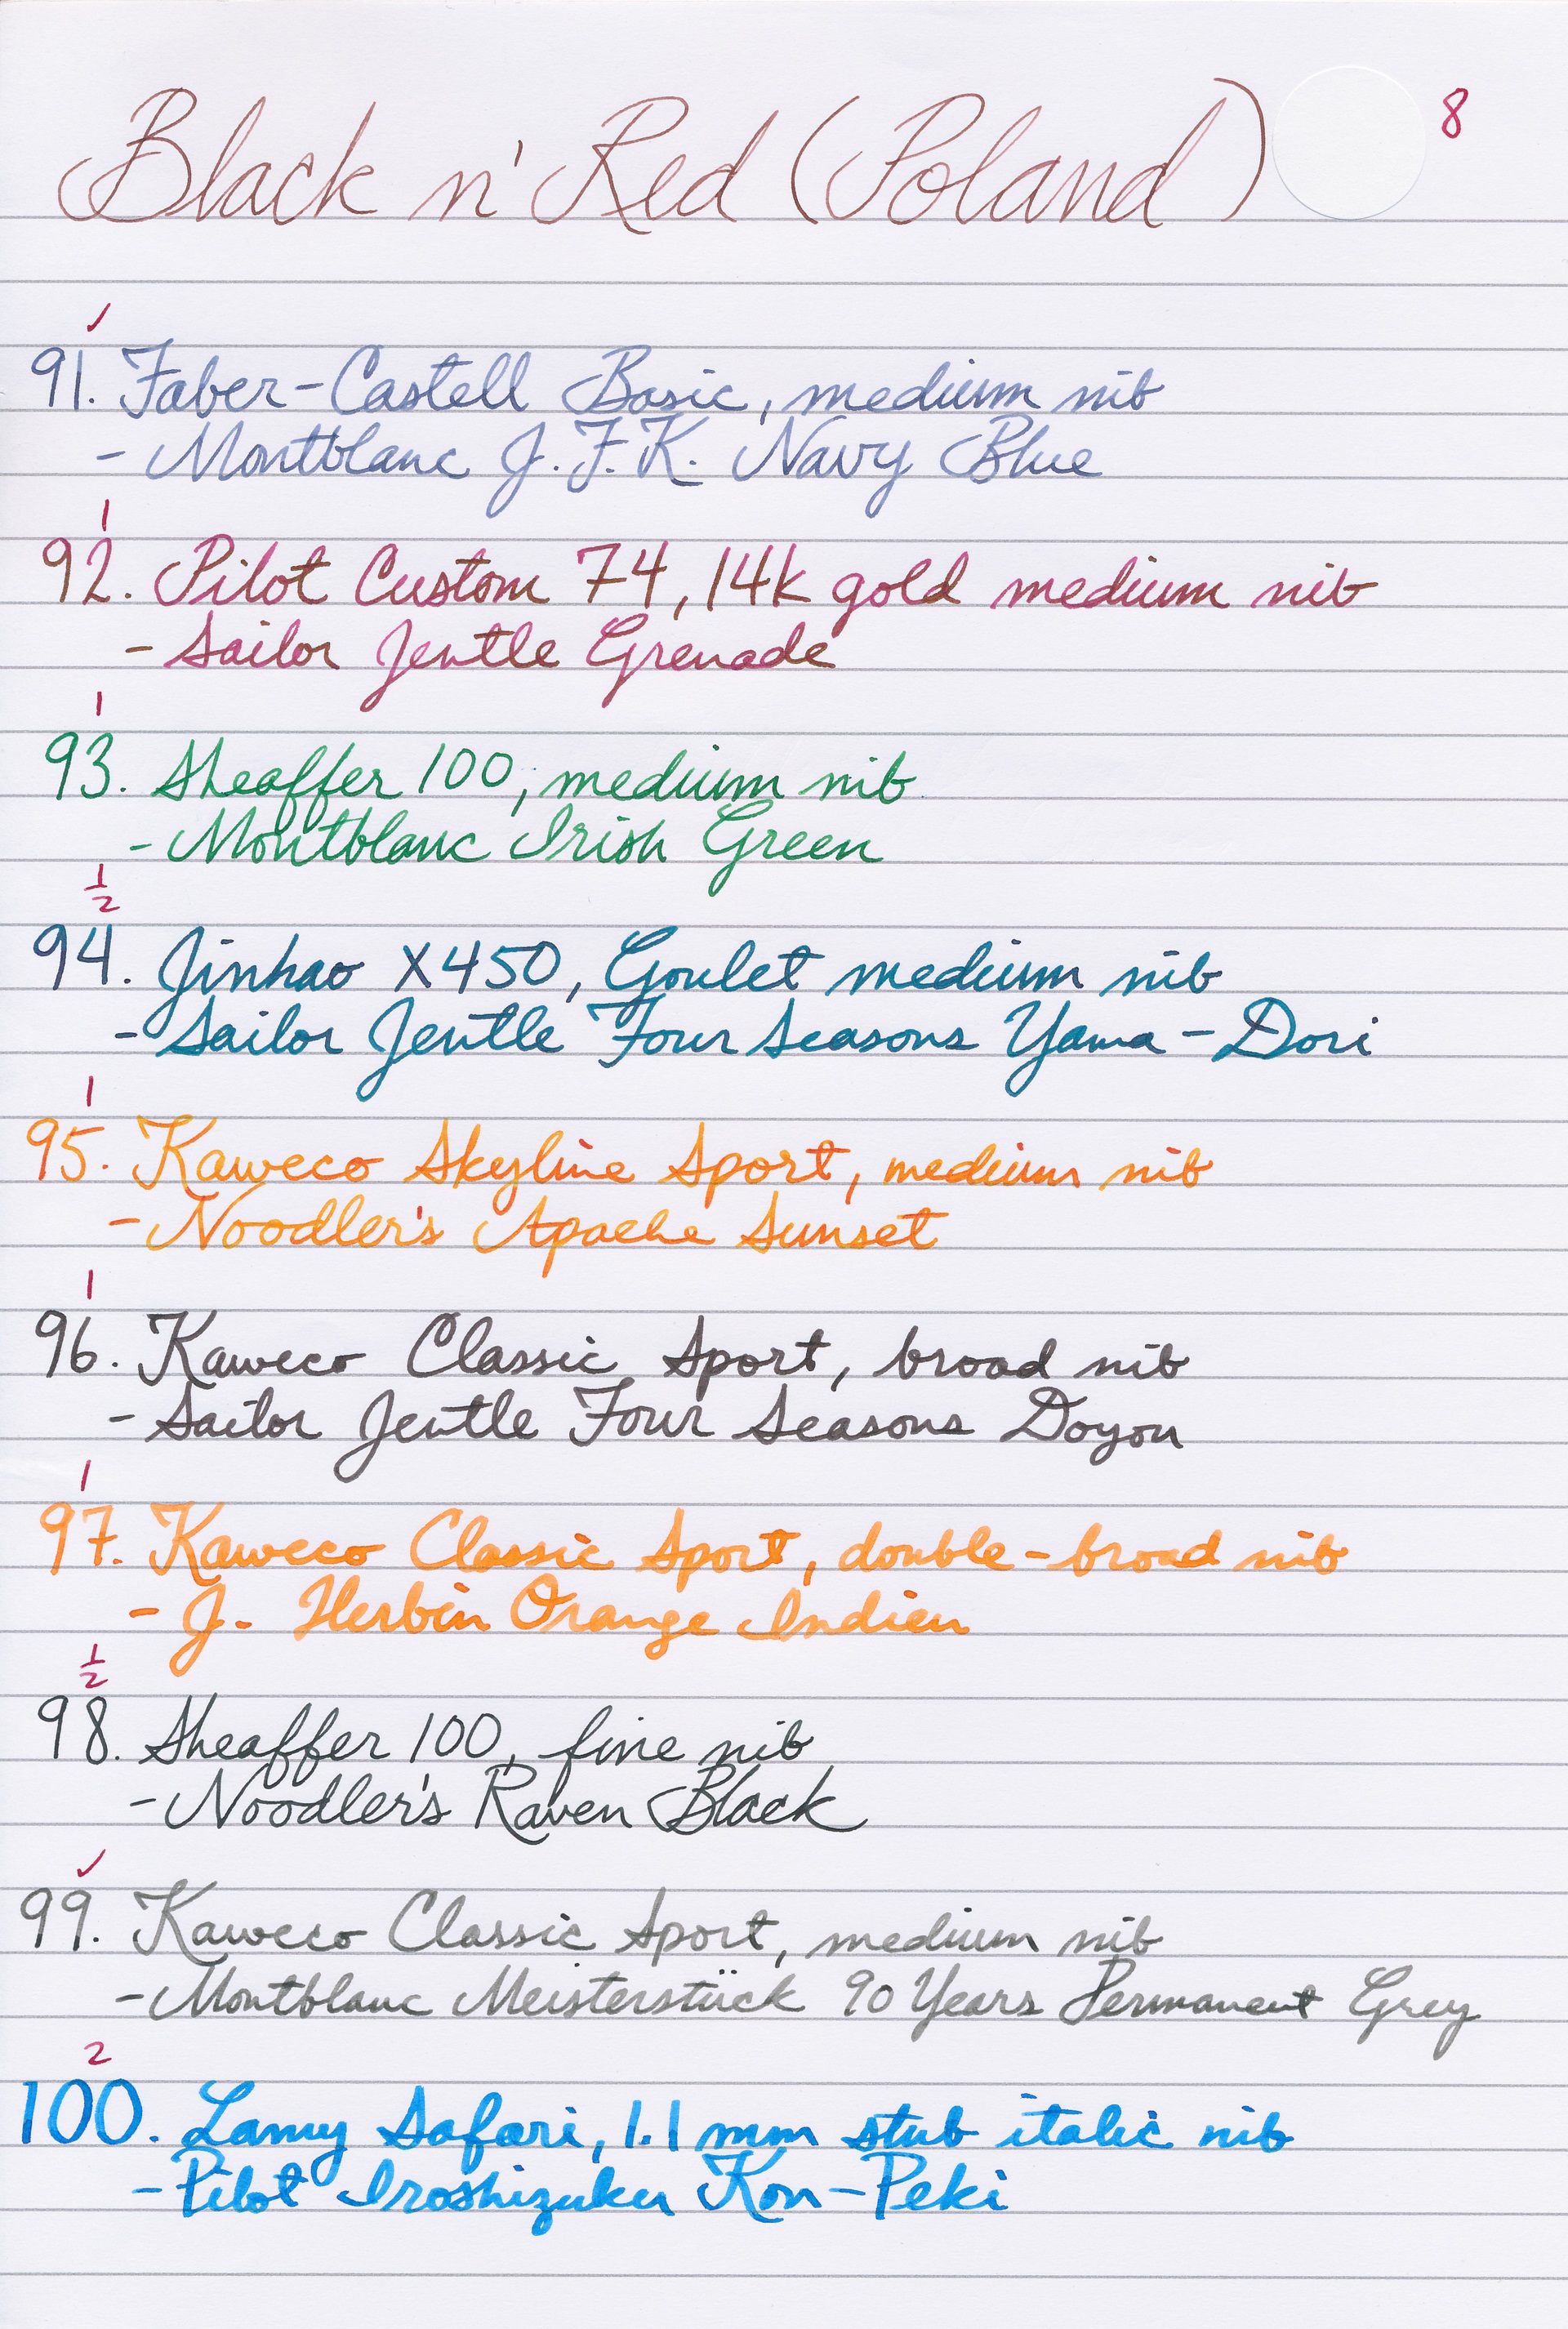 Black n' Red (Poland)
8
✓
91. Faber-Castell Basic, medium nib
- Montblanc J.F.K. Navy Blue
1
92. Pilot Custom 74, 14k gold medium nib
- Sailor Jentle Grenade
1
93. Sheaffer 100, medium nib
- Montblanc Irish Green
1/2
94. Jinhao X450, Goulet medium nib
- Sailor Jentle Four Seasons Yama-Dori
1
95. Kaweco Skyline Sport, medium nib
- Noodler's Apache Sunset
1
96. Kaweco Classic Sport, broad nib
- Sailor Jentle Four Seasons Doyou
1
97. Kaweco Classic Sport, double-broad nib
- J. Herbin Orange Indien
1/2
98. Sheaffer 100, fine nib
- Noodler's Raven Black
✓
99. Kaweco Classic Sport, medium nib
- Montblanc Meisterstück 90 Years Permanent Grey
2
100. Lamy Safari, 1.1 mm stub italic nib
- Pilot Iroshizuku Kon-Peki